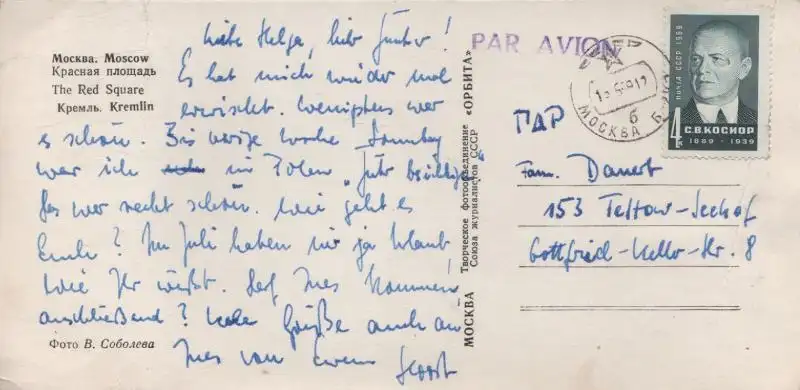 Москва. Moscow
Красная площадь
The Red Square
Кремль. Kremlin
Liebe Helga, lieb Günter!
Es hat mich wieder mal
erwischt. Wenigstens war
es schön. Bis vorige Woche Sonntag
war ich in Polen
Das war recht schön. Wie geht es
Euch? Im Juli haben wir ja Urlaub
wie Ihr wißt. Darf Ines kommen
anschließend? Viele Grüße auch an
Ines von Eurem Horst
Фото В. Соболева
МОСКВА Творческое фотообъединение «ОРБИТА»
Союза журналистов СССР
PAR AVION
МОСКВА
б
ПОЧТА СССР 1969
4к
С.В.КОСИОР
1889 - 1939
ГДР
Fam. Danert
153 Teltow-Seehof
Gottfried-Keller-Str. 8